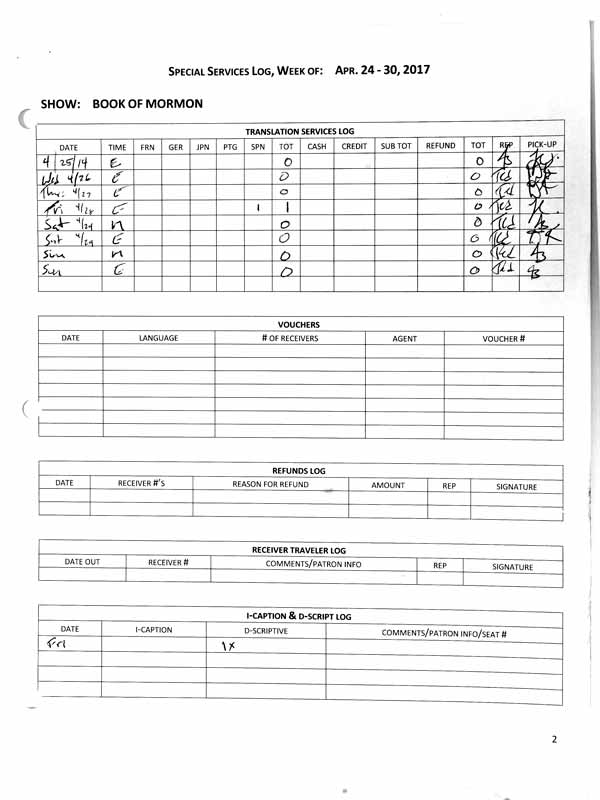 SPECIAL SERVICES LOG, WEEK OF: APR. 24 - 30, 2017
SHOW: BOOK OF MORMON
TRANSLATION SERVICES LOG
DATE TIME FRN GER JPN PTG SPN TOT CASH CREDIT SUB TOT REFUND TOT REP PICK-UP
4 25/14 E 0 0
Wed 4/26 E 0 0
Thu: 4/27 E 0 0
Fri 4/28 E 1 1 0
Sat 4/29 n 0 0
Sat 4/29 E 0 0
Sun n 0 0
Sun E 0 0
VOUCHERS
DATE LANGUAGE # OF RECEIVERS AGENT VOUCHER #
REFUNDS LOG
DATE RECEIVER #'S REASON FOR REFUND AMOUNT REP SIGNATURE
RECEIVER TRAVELER LOG
DATE OUT RECEIVER # COMMENTS/PATRON INFO REP SIGNATURE
I-CAPTION & D-SCRIPT LOG
DATE I-CAPTION D-SCRIPTIVE COMMENTS/PATRON INFO/SEAT #
Fri 1x
2